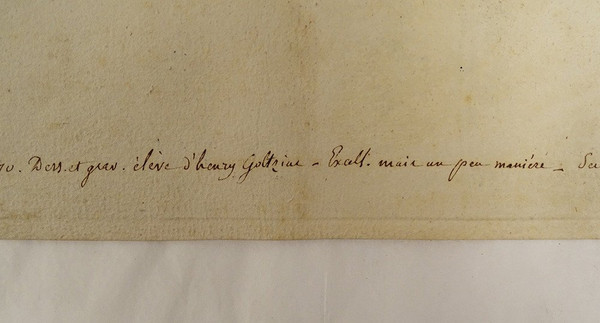 70. Dess. et grav. élève d'henry Goltzius - Excell. mais un peu maniéré -